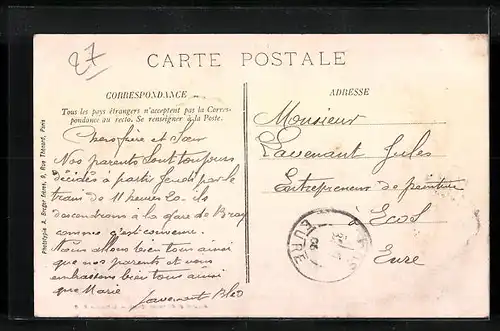 27
CARTE POSTALE
CORRESPONDANCE
Tous les pays étrangers n'acceptent pas la Corres-
pondance au recto. Se renseigner à la Poste.
Chers frère et Sœur
Nos parents sont toujours
décidés à partir Jeudi par le
train de 11 heures 20. ils
descendrons à la gare de Bray
comme c'est convenu.
Nous allons bien tous ainsi
que nos parents et vous
embrassons bien tous ainsi
que Marie
Lavenant
ADRESSE
Monsieur
Lavenant Jules
Entrepreneur de peinture
à Ecos
Eure
EURE
Phototypie A. Breger frères, 9, Rue Thénard, Paris